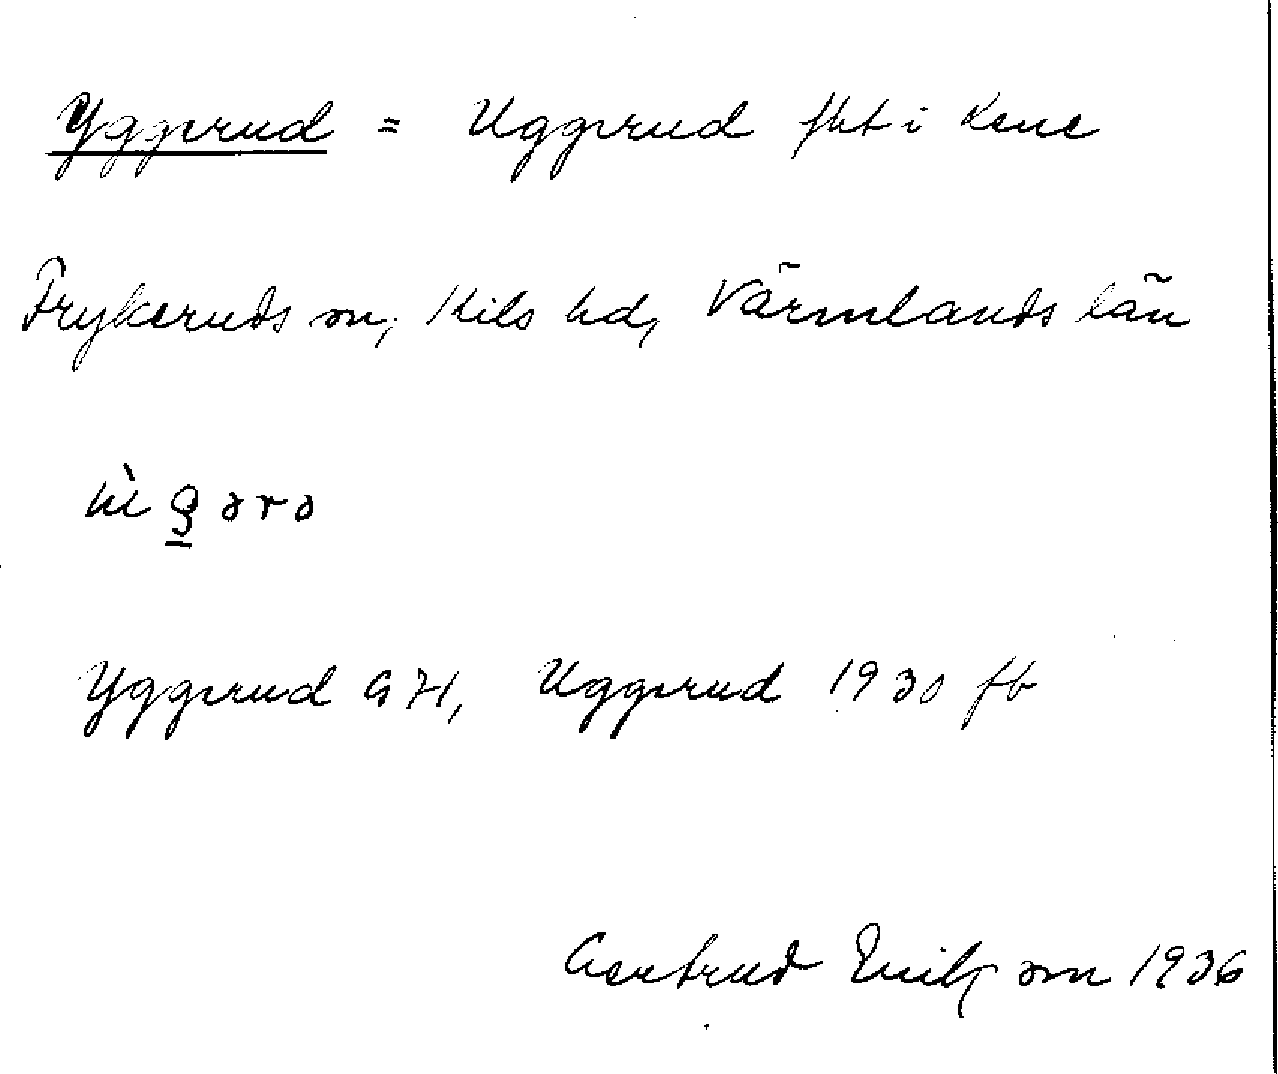 Yggerud = Uggerud fht i Kene
Frykeruds sn, Kils hd, Värmlands län
Yggerud GH, Uggerud 1930 fb
Gertrud 1936